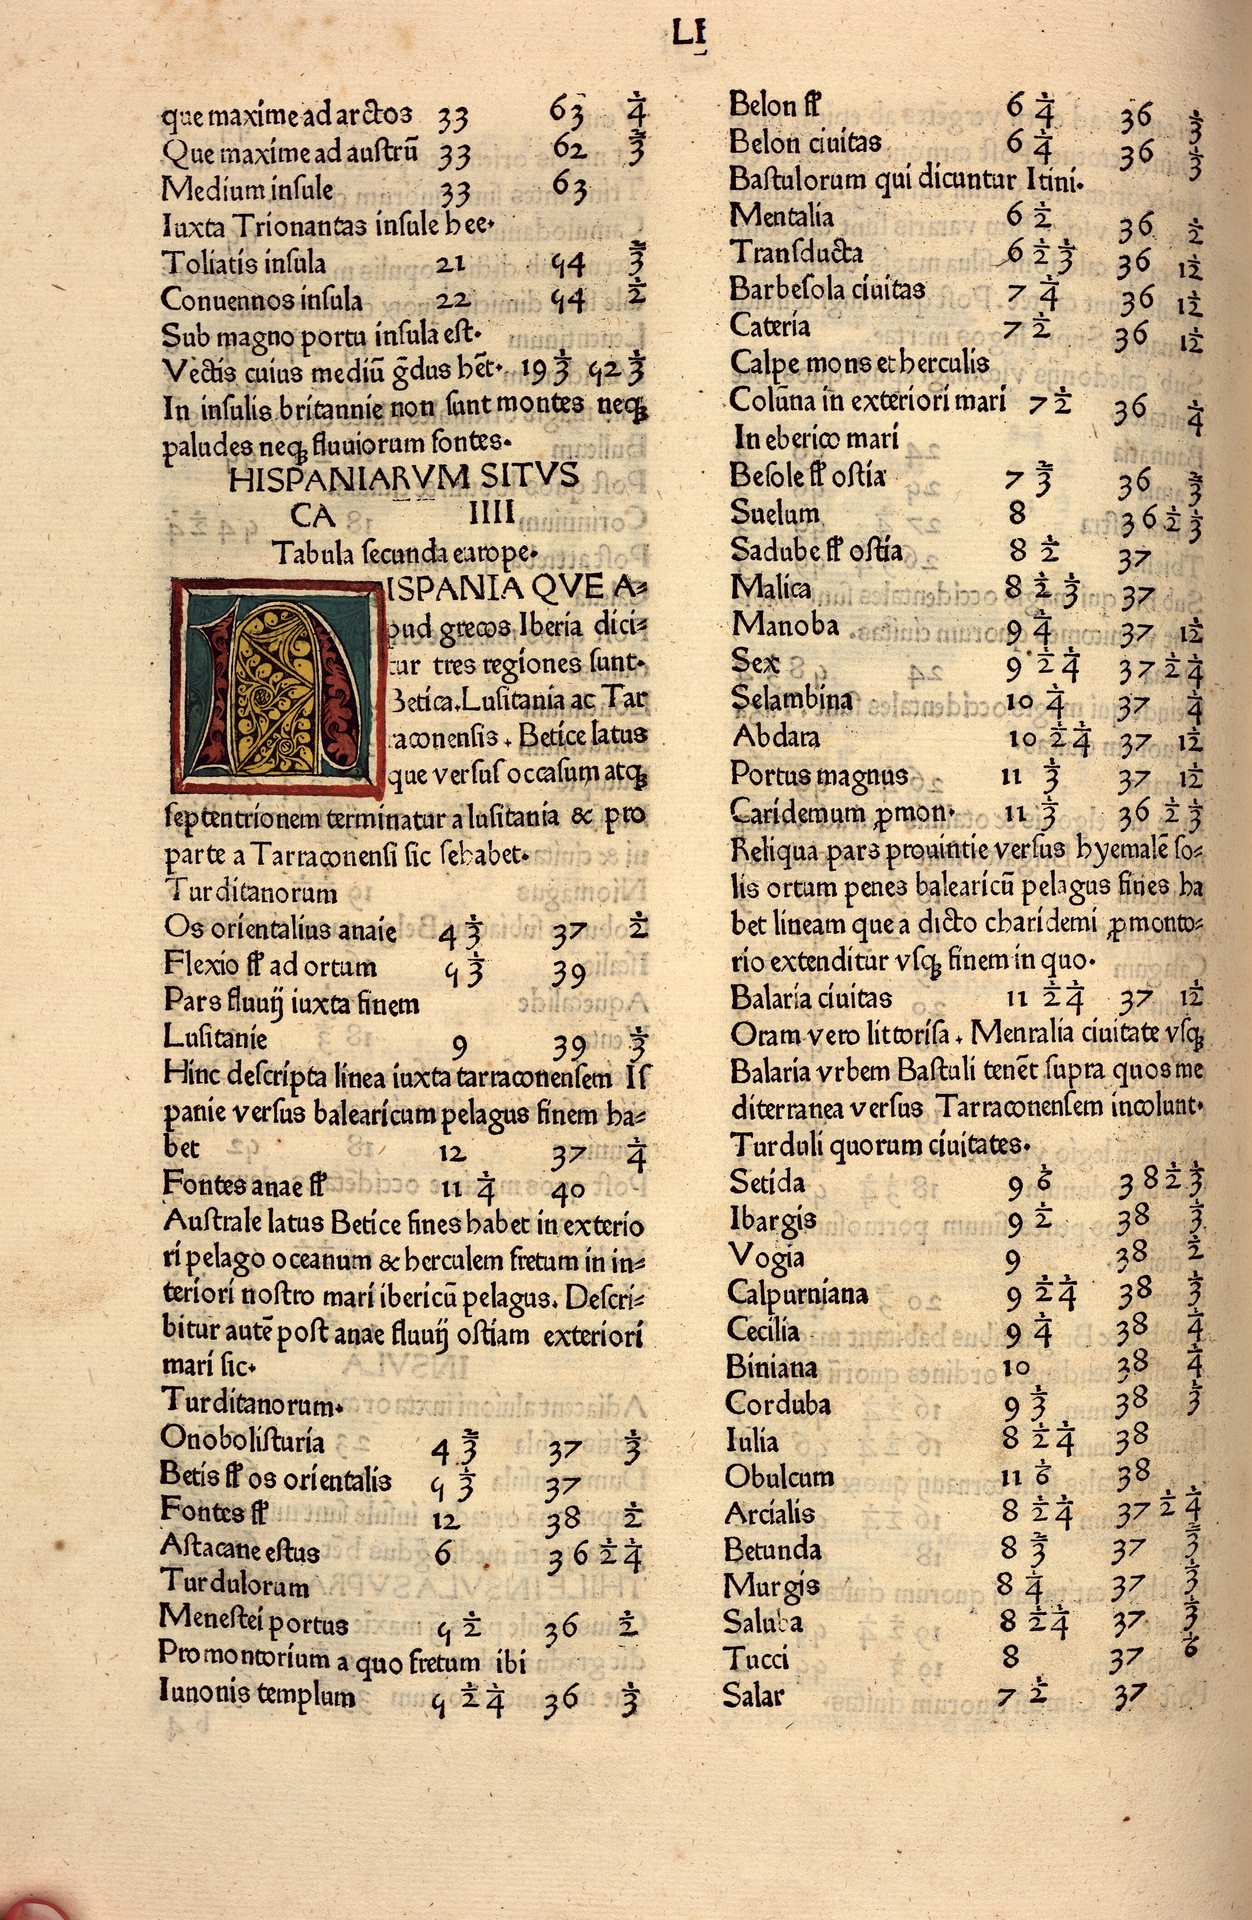 LI
que maxime ad arctos 33 63 1/4
Que maxime ad austrū 33 62 2/3
Medium insule 33 63
Iuxta Trionantas insule hee.
Toliatis insula 21 54 2/3
Conuennos insula 22 54 1/2
Sub magno portu insula est.
Vectis cuius mediū g̃dus hēt. 19 1/3 52 1/3
In insulis britannie non sunt montes neqꝫ
paludes neqꝫ fluuiorum fontes.
HISPANIARVM SITVS
CA IIII
Tabula secunda europe.
HISPANIA QVE A⸗
pud grecos Iberia dici⸗
tur tres regiones sunt.
Betica. Lusitania ac Tar
raconensis. Betice latus
que versus occasum atqꝫ
septentrionem terminatur a lusitania & pro
parte a Tarraconensi sic sehabet.
Turditanorum
Os orientalius anaie 4 1/3 37 1/2
Flexio fl̃ ad ortum 5 1/3 39
Pars fluuij iuxta finem
Lusitanie 9 39 1/3
Hinc descripta linea iuxta tarraconensem Is
panie versus balearicum pelagus finem ha⸗
bet 12 37 1/4
Fontes anae fl̃ 11 1/4 40
Australe latus Betice fines habet in exterio
ri pelago oceanum & herculem fretum in in⸗
teriori nostro mari ibericū pelagus. Descri⸗
bitur autē post anae fluuij ostiam exteriori
mari sic.
Turditanorum.
Onobolisturia 4 2/3 37 1/3
Betis fl̃ os orientalis 5 1/3 37
Fontes fl̃ 12 38 1/2
Astacane estus 6 36 1/2 1/4
Turdulorum
Menestei portus 5 1/2 36 1/2
Promontorium a quo fretum ibi
Iunonis templum 5 1/2 1/4 36 1/3
Belon fl̃ 6 1/4 36 1/3
Belon ciuitas 6 1/4 36 1/3
Bastulorum qui dicuntur Itini.
Mentalia 6 1/2 36 1/2
Transducta 6 1/2 1/3 36 1/12
Barbesola ciuitas 7 1/4 36 1/12
Cateria 7 1/2 36 1/12
Calpe mons et herculis
Colūna in exteriori mari 7 1/2 36 1/4
In eberico mari
Besole fl̃ ostia 7 2/3 36 2/3
Suelum 8 36 1/2 1/3
Sadube fl̃ ostia 8 1/2 37
Malica 8 1/2 1/3 37
Manoba 9 1/4 37 1/12
Sex 9 1/2 1/4 37 1/2 1/4
Selambina 10 1/4 37 1/4
Abdara 10 1/2 1/4 37 1/12
Portus magnus 11 1/3 37 1/12
Caridemum ꝓmon. 11 1/3 36 1/2 1/3
Reliqua pars prouintie versus hyemalē so⸗
lis ortum penes balearicū pelagus fines ha
bet lineam que a dicto charidemi ꝓmonto⸗
rio extenditur vsqꝫ finem in quo.
Balaria ciuitas 11 1/2 1/4 37 1/12
Oram vero littorisa. Menralia ciuitate vsqꝫ
Balaria vrbem Bastuli tenēt supra quos me
diterranea versus Tarraconensem incolunt.
Turduli quorum ciuitates.
Setida 9 1/6 38 1/2 1/3
Ibargis 9 1/2 38 1/3
Vogia 9 38 1/2
Calpurniana 9 1/2 1/4 38 1/3
Cecilia 9 1/4 38 1/4
Biniana 10 38 1/4
Corduba 9 1/3 38 1/3
Iulia 8 1/2 1/4 38
Obulcum 11 1/6 38
Arcialis 8 1/2 1/4 37 1/2 1/4
Betunda 8 2/3 37 2/3
Murgis 8 1/4 37 1/3
Saluba 8 1/2 1/4 37 1/3
Tucci 8 37 1/6
Salar 7 1/2 37